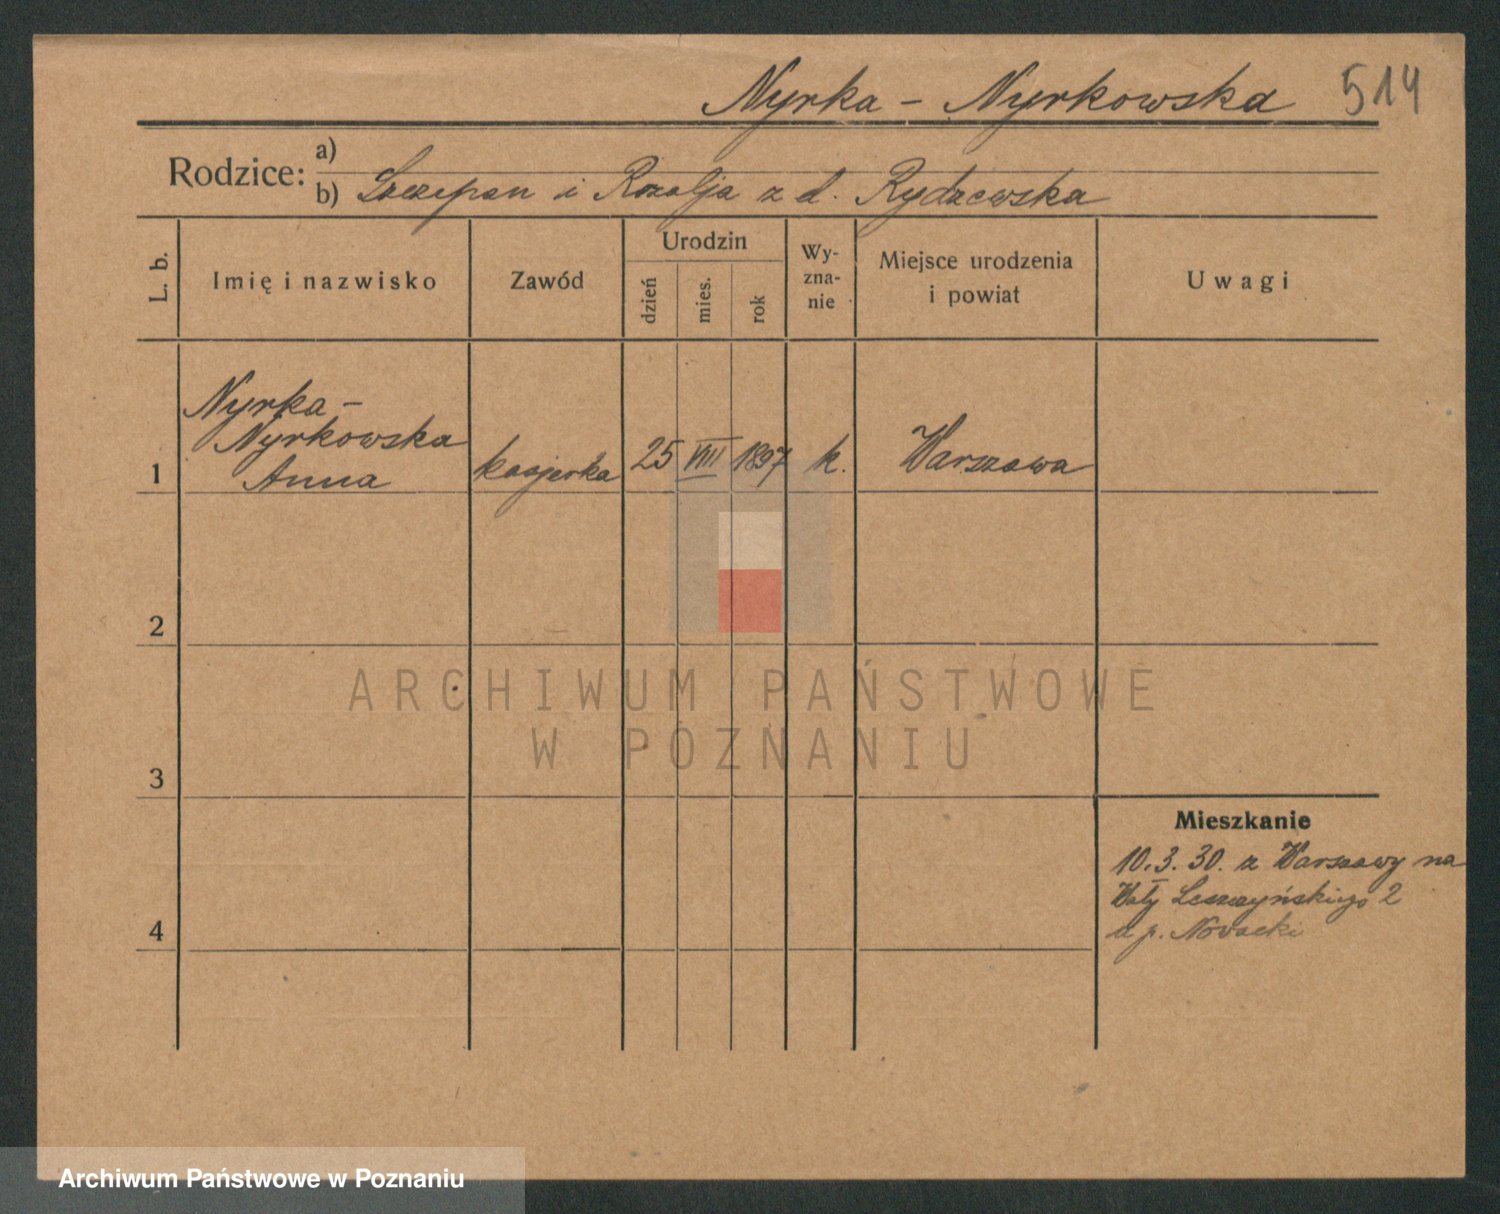 Nyrka - Nyrkowska 514
Rodzice: a)
b) Szczepan i Rozalja z d. Rydzewska
L. b. Imię i nazwisko Zawód Urodzin dzień mies. rok Wy-zna-nie Miejsce urodzenia i powiat Uwagi
Nyrka -
Nyrkowska
1 Anna kasjerka 25 VIII 1897 k. Warszawa
2
ARCHIWUM PAŃSTWOWE
W POZNANIU
3
Mieszkanie
10.3.30. z Warszawy na
Wały Leszczyńskiego 2
u p. Nowacki
4
Archiwum Państwowe w Poznaniu